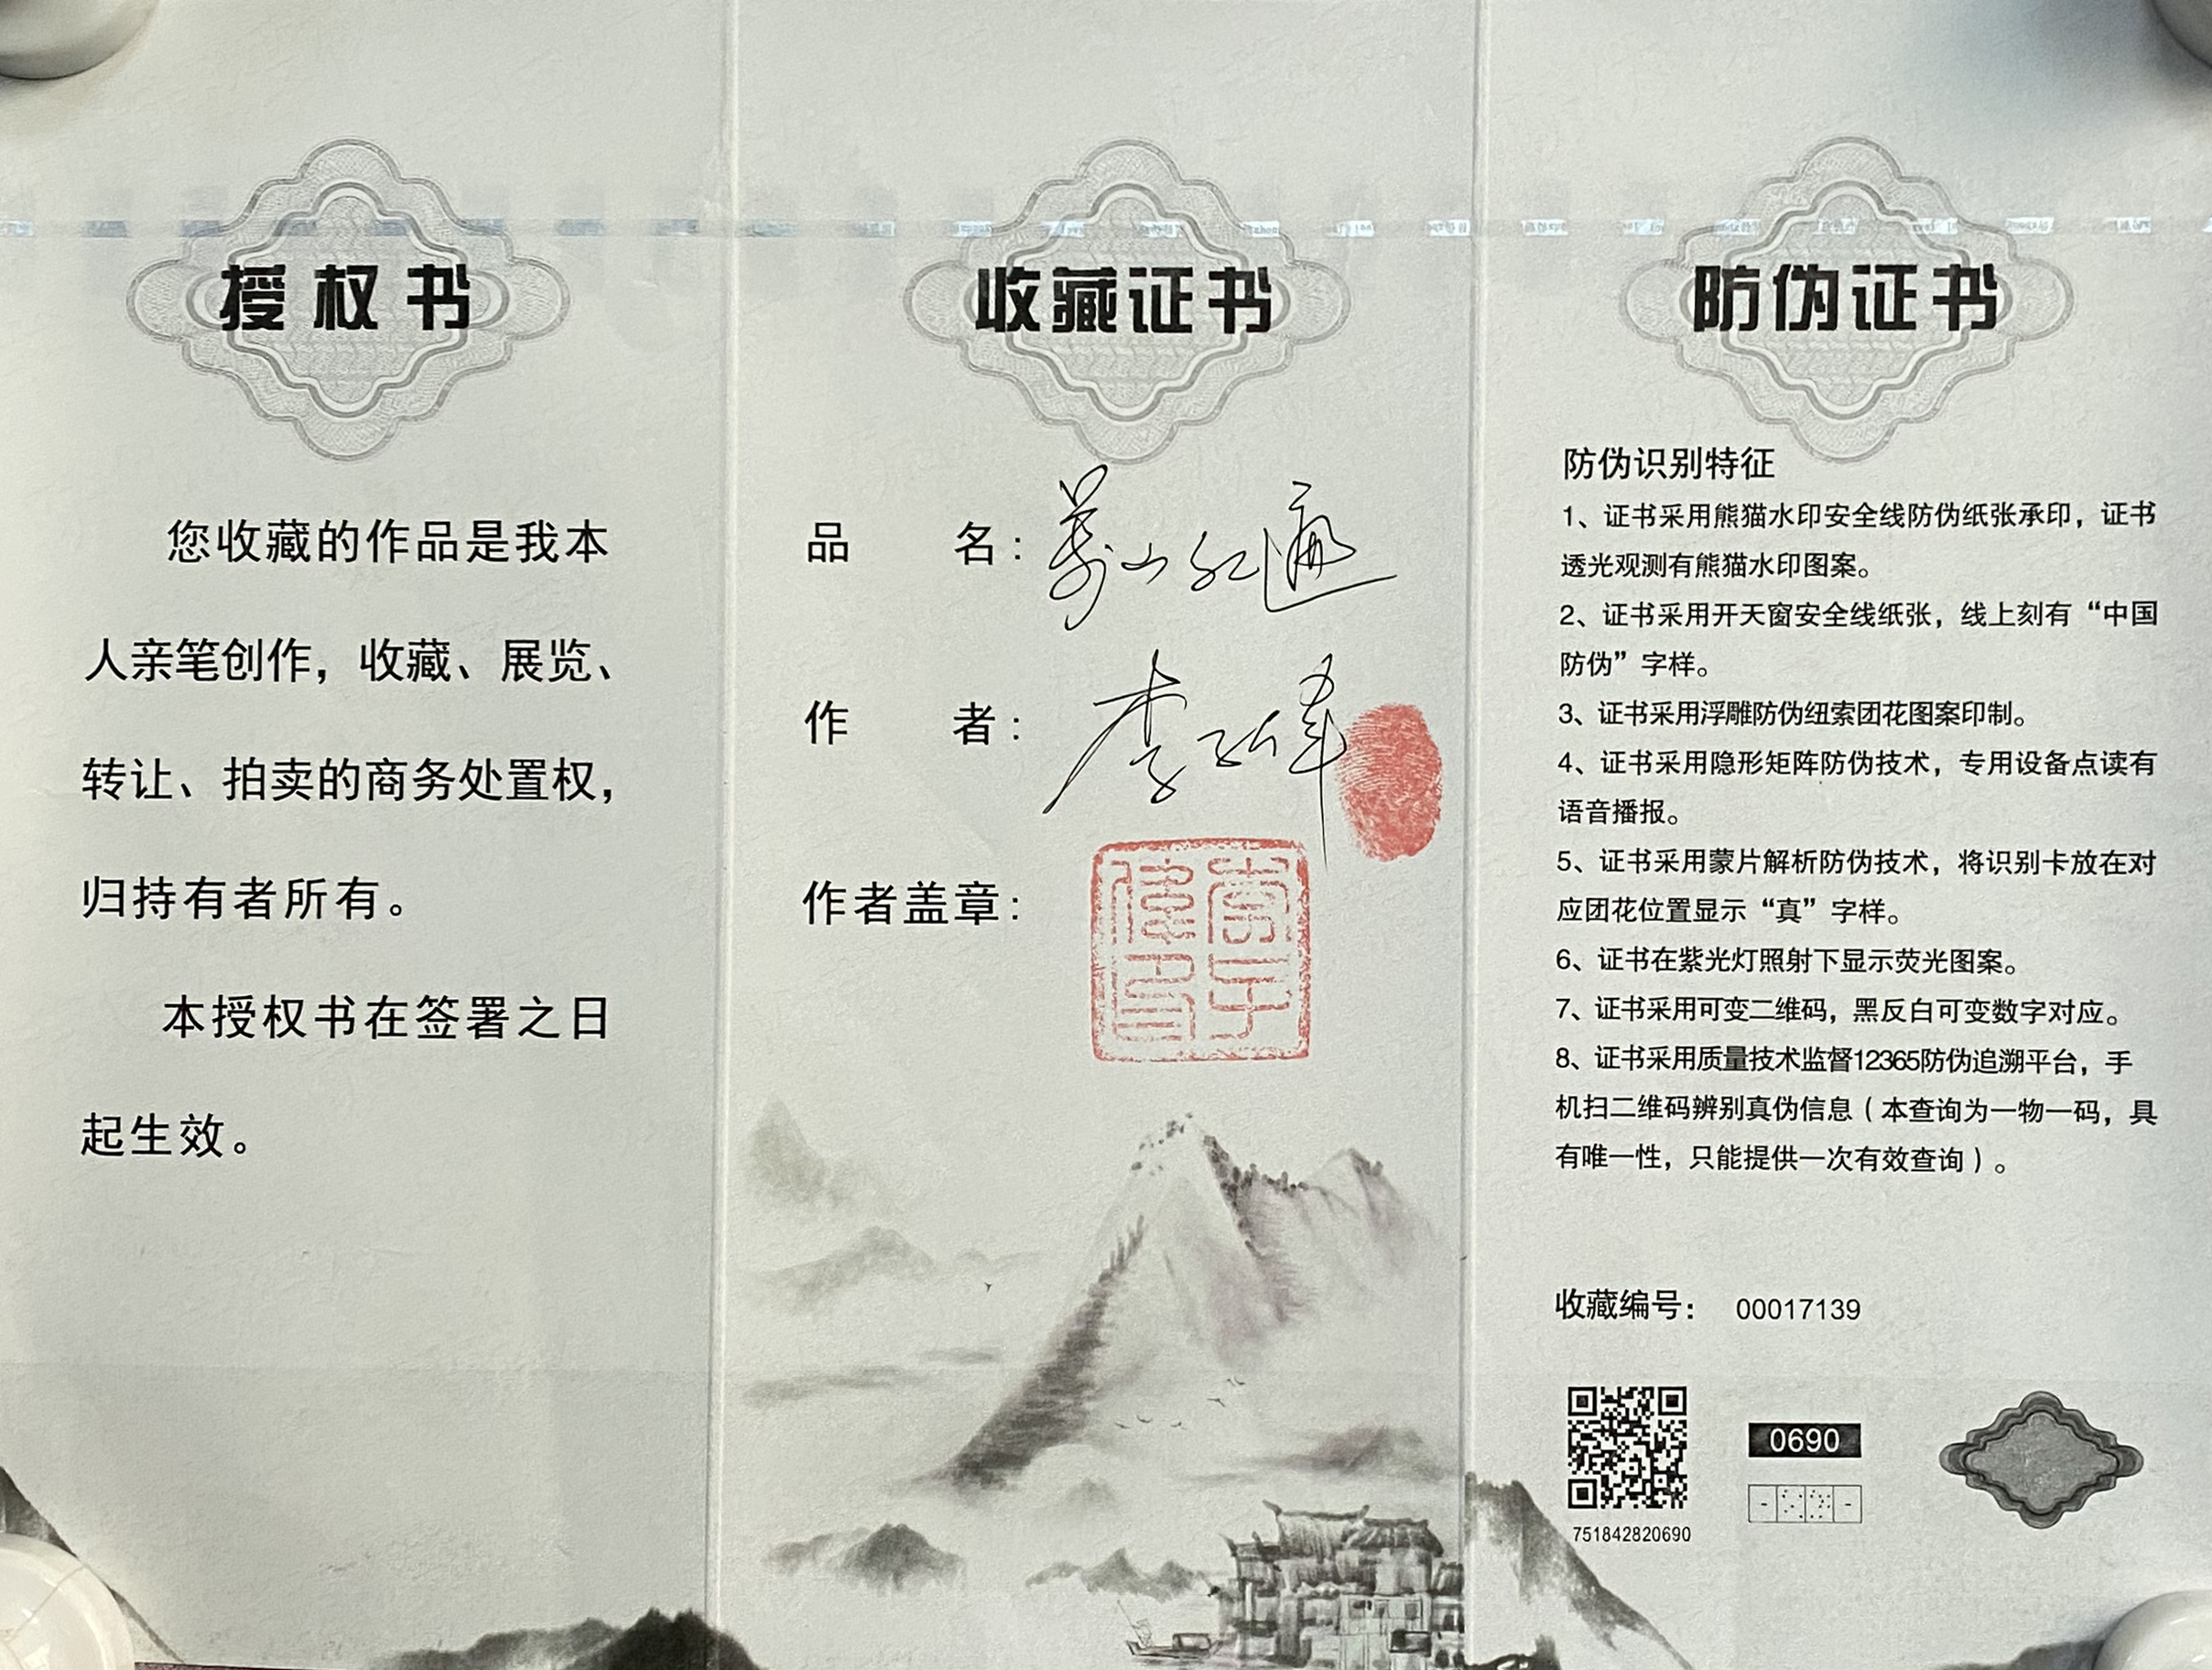 授权书
您收藏的作品是我本
人亲笔创作，收藏、展览、
转让、拍卖的商务处置权，
归持有者所有。
本授权书在签署之日
起生效。
收藏证书
品 名：萬山红遍
作 者：李子伟
作者盖章：
李子偉印
防伪证书
防伪识别特征
1、证书采用熊猫水印安全线防伪纸张承印，证书
透光观测有熊猫水印图案。
2、证书采用开天窗安全线纸张，线上刻有“中国
防伪”字样。
3、证书采用浮雕防伪纽索团花图案印制。
4、证书采用隐形矩阵防伪技术，专用设备点读有
语音播报。
5、证书采用蒙片解析防伪技术，将识别卡放在对
应团花位置显示“真”字样。
6、证书在紫光灯照射下显示荧光图案。
7、证书采用可变二维码，黑反白可变数字对应。
8、证书采用质量技术监督12365防伪追溯平台，手
机扫二维码辨别真伪信息（本查询为一物一码，具
有唯一性，只能提供一次有效查询）。
收藏编号： 00017139
0690
751842820690